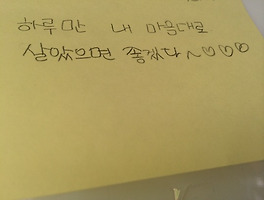 하루만 내 마음대로
살았으면 좋겠다~♡♡♡